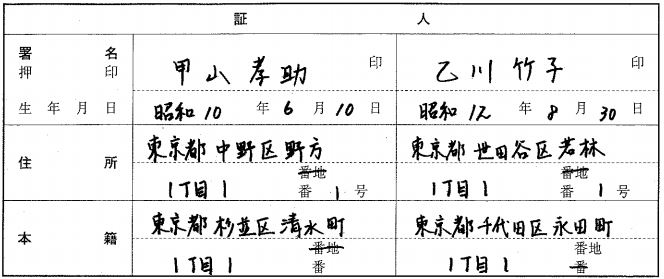 証 人
署名 押印 甲山孝助 印 乙川竹子 印
生年月日 昭和10年6月10日 昭和12年8月30日
住所 東京都中野区野方 東京都世田谷区若林
番地 番地
1丁目1 番 1号 1丁目1 番 1号
本籍 東京都杉並区清水町 東京都千代田区永田町
番地 番地
1丁目1 番 1丁目1 番